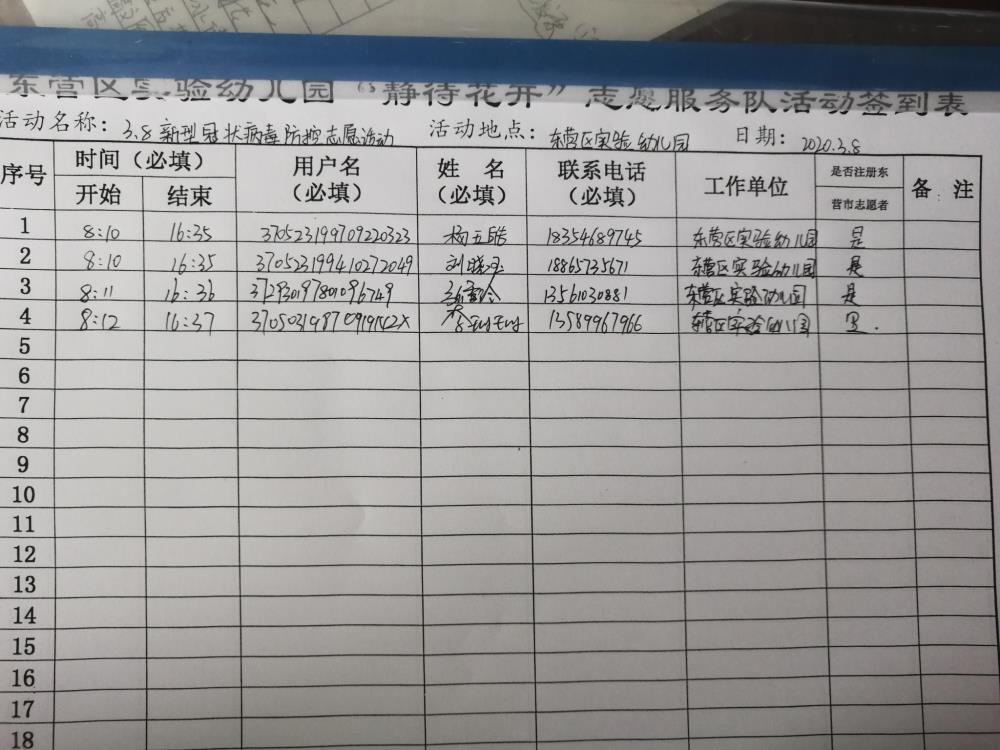 东营区实验幼儿园“静待花开”志愿服务队活动签到表
活动名称：3.8新型冠状病毒防控志愿活动 活动地点：东营区实验幼儿园 日期：2020.3.8
序号 时间（必填） 用户名（必填） 姓名（必填） 联系电话（必填） 工作单位 是否注册东营市志愿者 备注
开始 结束
1 8:10 16:35 370523199709220323 杨五皓 18354689745 东营区实验幼儿园 是
2 8:10 16:35 370523199410272049 刘晓 18865735671 东营区实验幼儿园 是
3 8:11 16:36 372930197801096749 13561030881 东营区实验幼儿园 是
4 8:12 16:37 13589967966 东营区实验幼儿园 是.
5
6
7
8
9
10
11
12
13
14
15
16
17
18